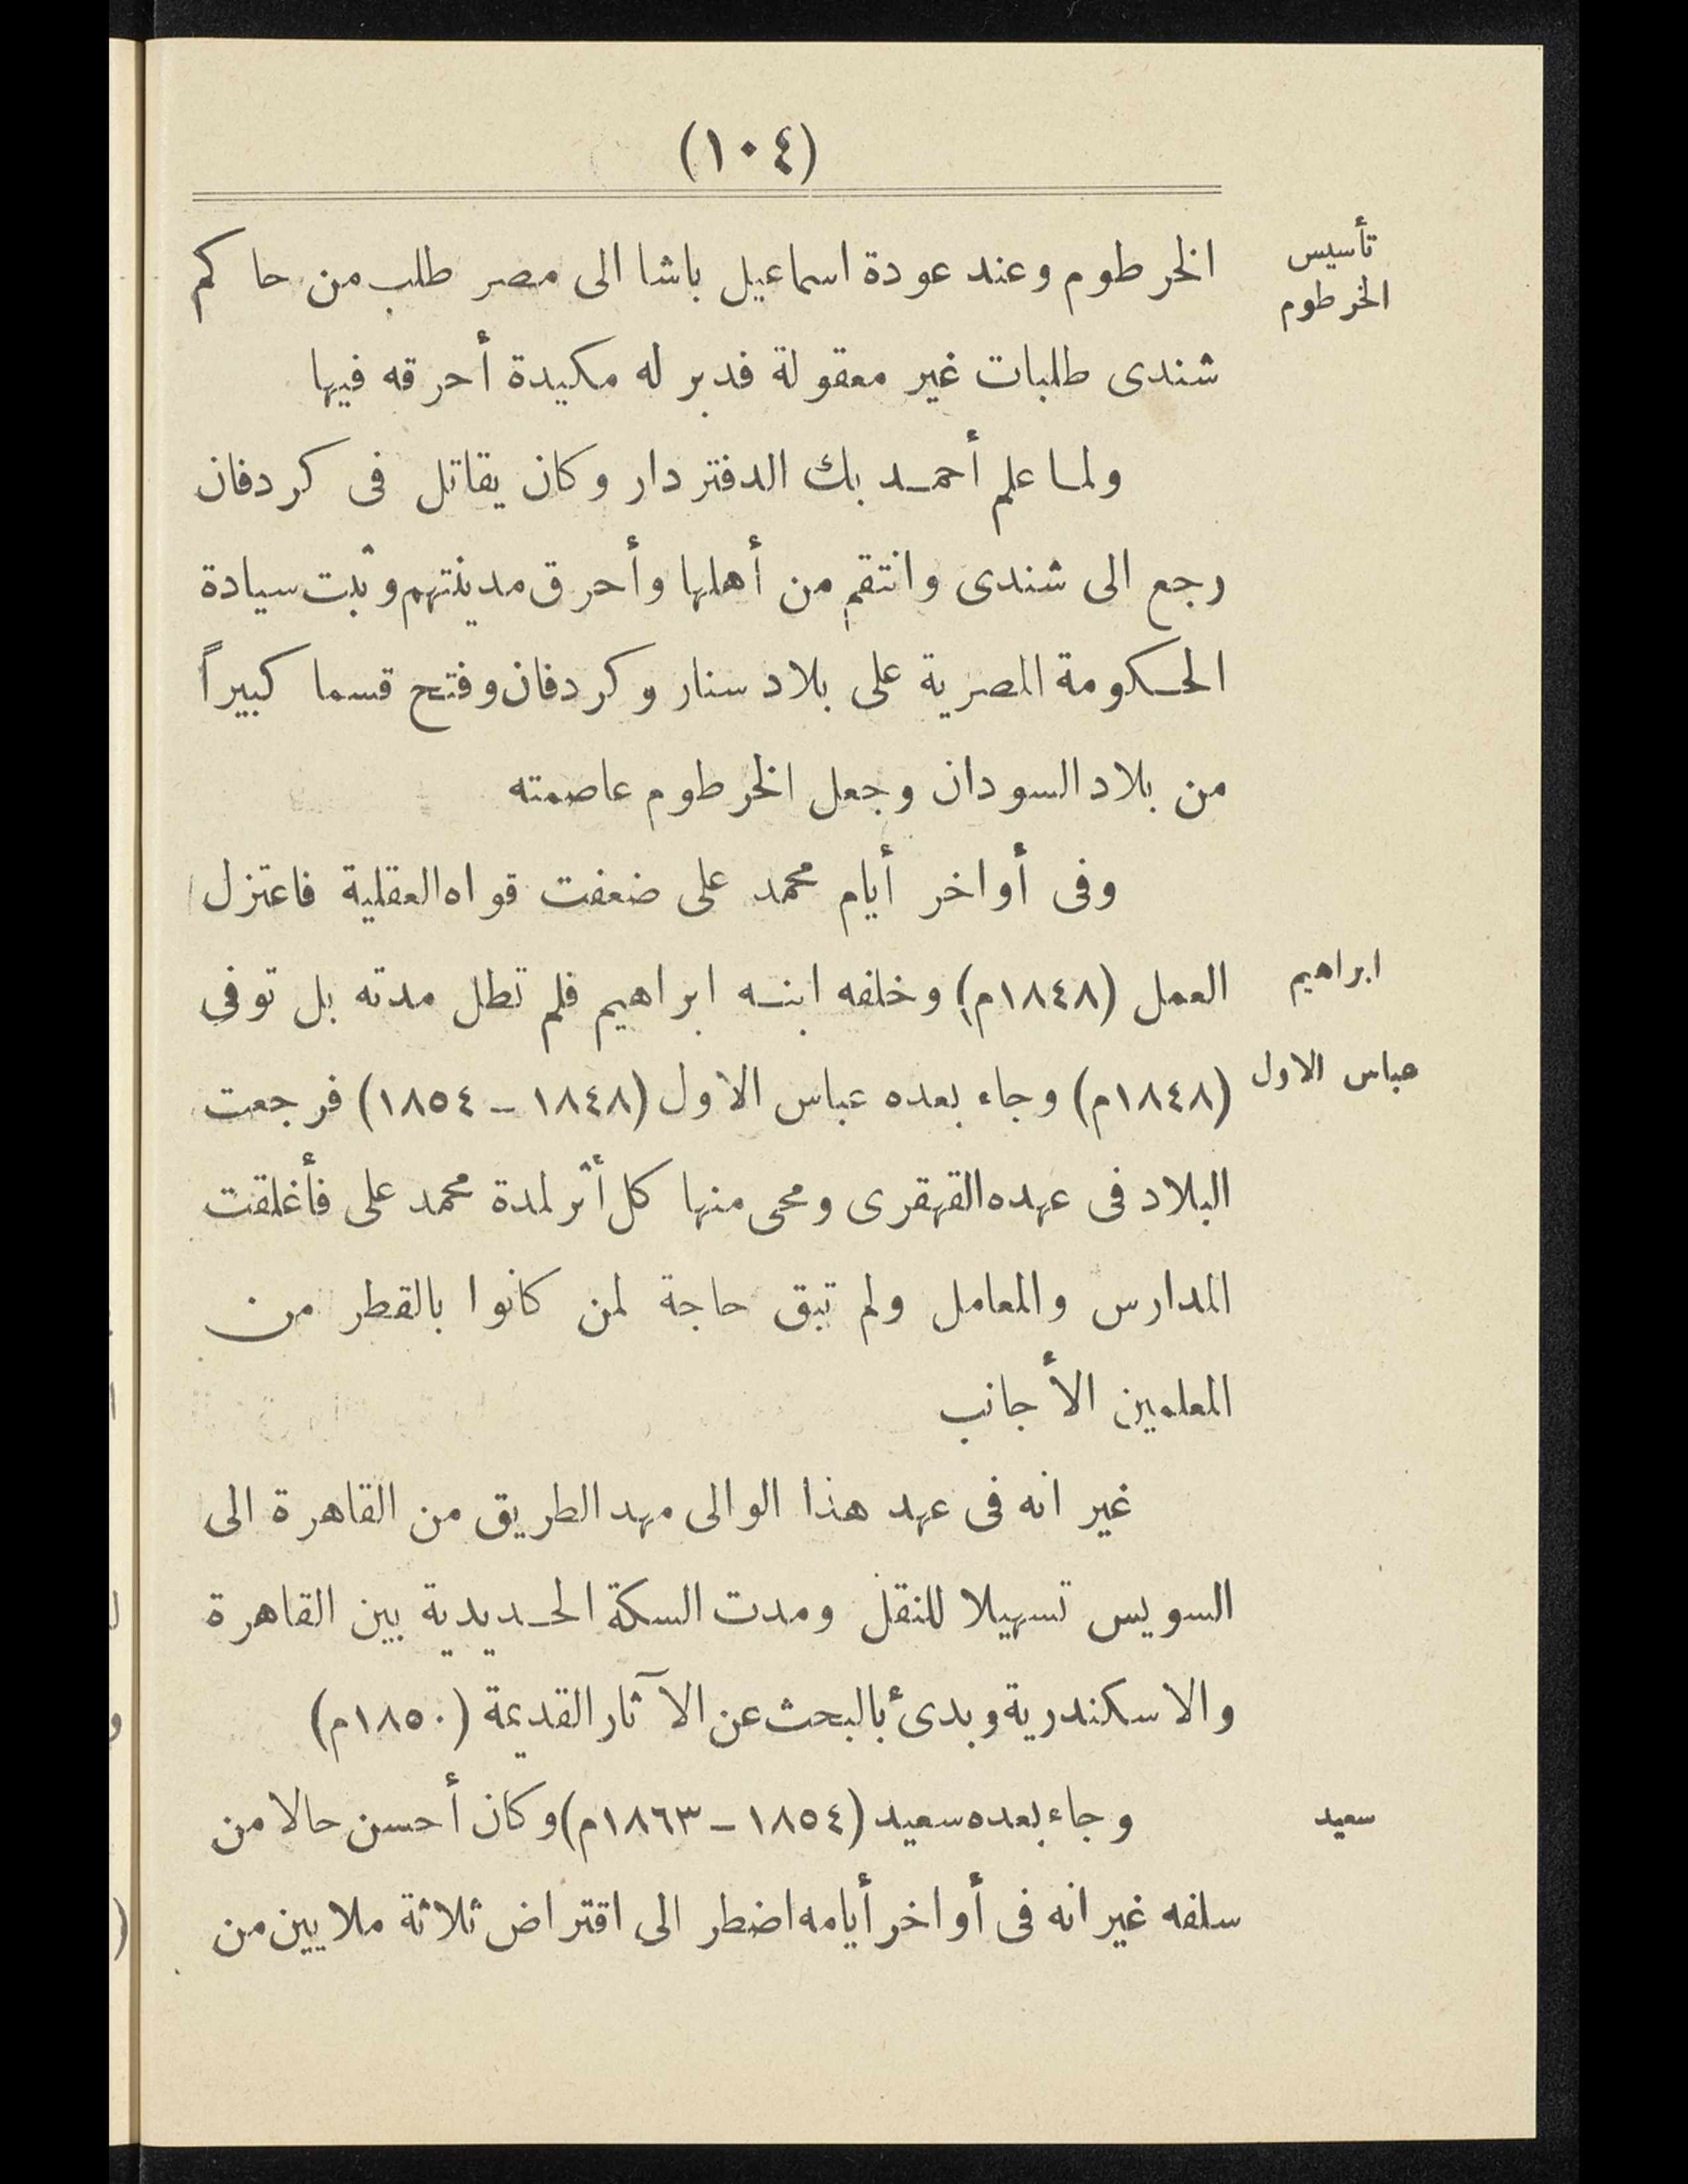 (١٠٤)
تأسيس
الخرطوم
الخرطوم وعند عودة اسماعيل باشا الى مصر طلب من حاكم
شندى طلبات غير معقولة فدبر له مكيدة أحرقه فيها
ولما علم أحمد بك الدفتردار وكان يقاتل فى كردفان
رجع الى شندى وانتقم من أهلها وأحرق مدينتهم وثبت سيادة
الحكومة المصرية على بلاد سنار وكردفان وفتح قسما كبيراً
من بلاد السودان وجعل الخرطوم عاصمته
وفى أواخر أيام محمد على ضعفت قواه العقلية فاعتزل
ابراهيم
العمل (١٨٤٨م) وخلفه ابنه ابراهيم فلم تطل مدته بل توفى
عباس الاول
(١٨٤٨م) وجاء بعده عباس الاول (١٨٤٨ – ١٨٥٤) فرجعت
البلاد فى عهده القهقرى ومحى منها كل أثر لمدة محمد على فأغلقت
المدارس والمعامل ولم تبق حاجة لمن كانوا بالقطر من
المعلمين الأجانب
غير انه فى عهد هذا الوالى مهد الطريق من القاهرة الى
السويس تسهيلا للنقل ومدت السكة الحديدية بين القاهرة
والاسكندرية وبدئ بالبحث عن الآثار القديمة (١٨٥٠م)
سعيد
وجاء بعده سعيد (١٨٥٤ – ١٨٦٣م) وكان أحسن حالا من
سلفه غير انه فى أواخر أيامه اضطر الى اقتراض ثلاثة ملايين من